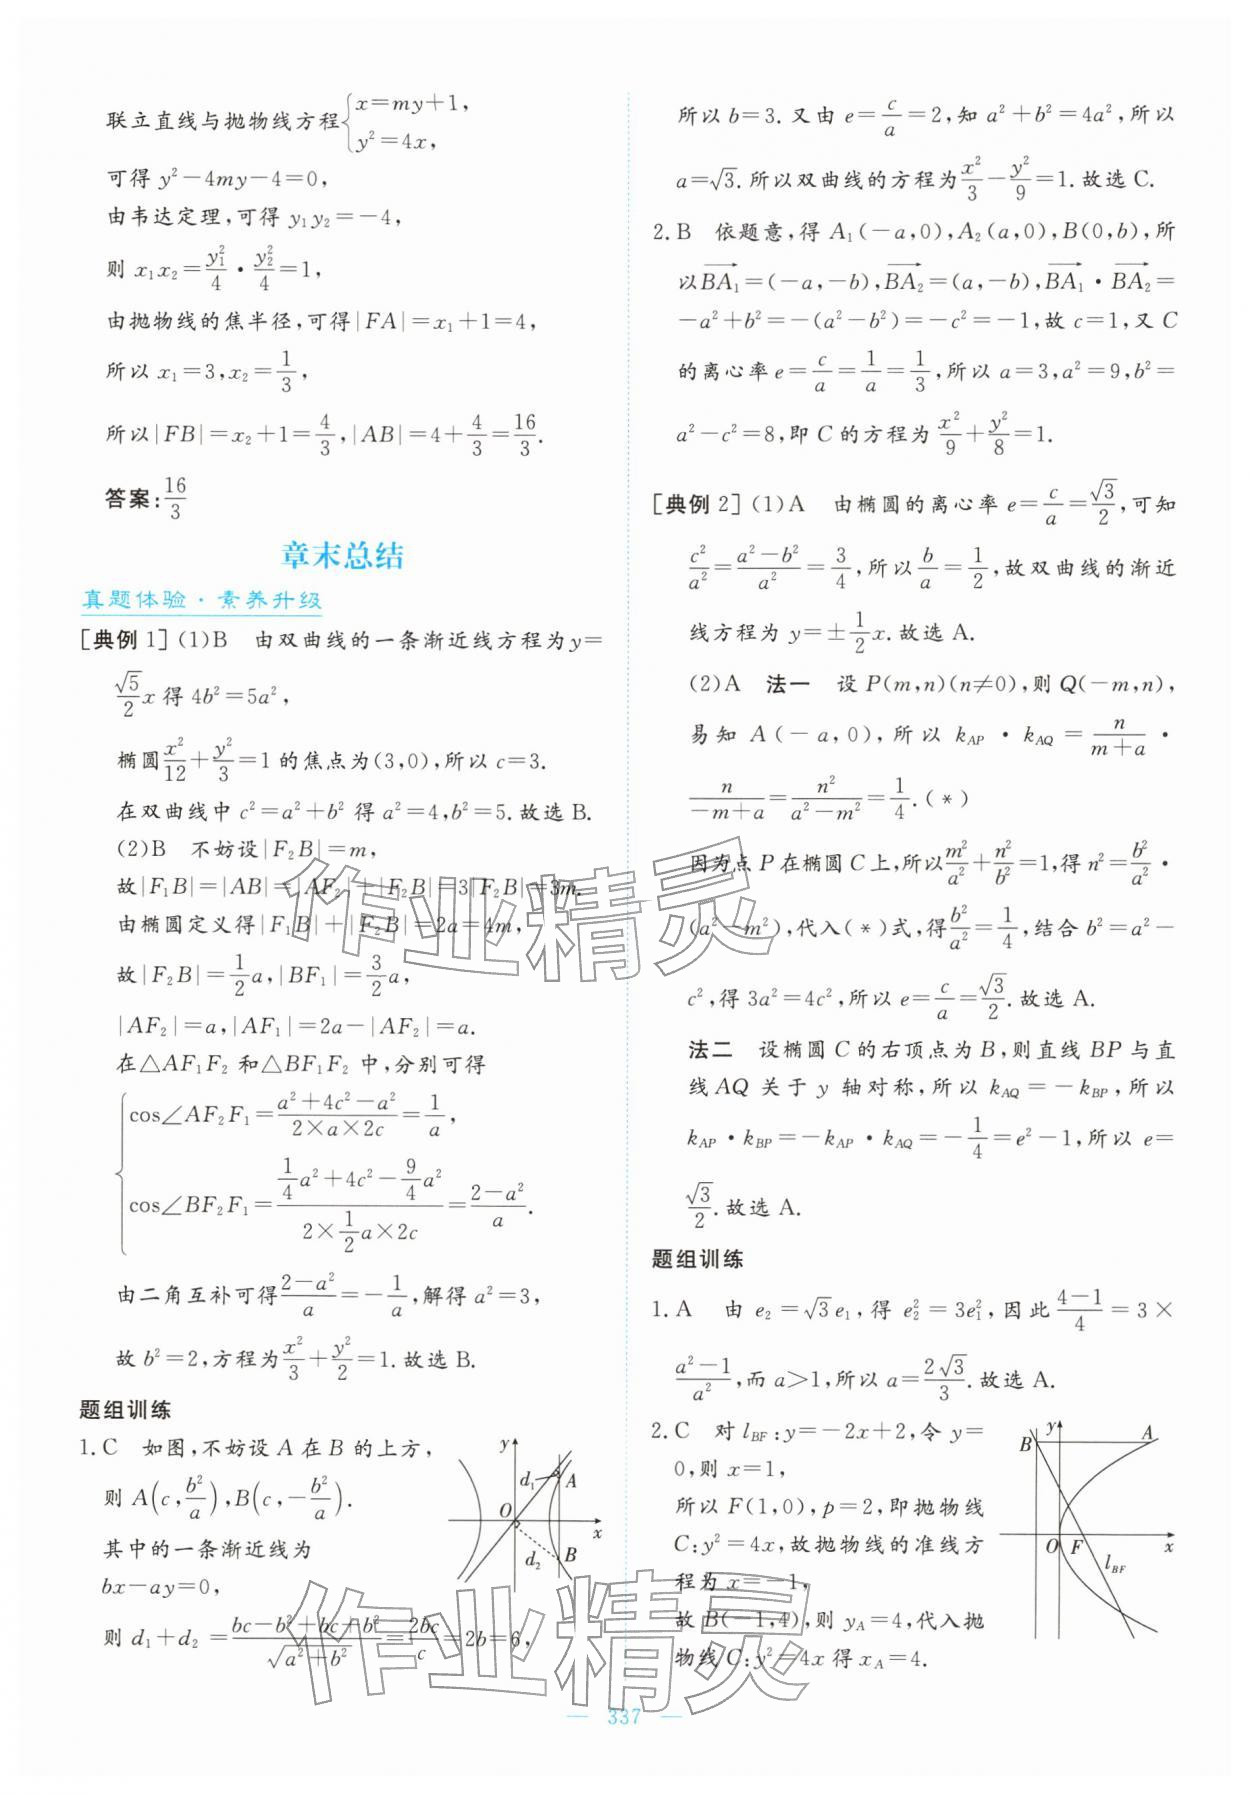 联立直线与抛物线方程{x=my+1, y²=4x,
可得 y²-4my-4=0,
由韦达定理,可得 y₁y₂=-4,
则 x₁x₂=y₁²/4·y₂²/4=1,
由抛物线的焦半径,可得|FA|=x₁+1=4,
所以 x₁=3,x₂=1/3,
所以|FB|=x₂+1=4/3,|AB|=4+4/3=16/3.
答案:16/3
章末总结
真题体验·素养升级
[典例1](1)B 由双曲线的一条渐近线方程为y=
√5/2 x 得 4b²=5a²,
椭圆x²/12+y²/3=1 的焦点为(3,0),所以 c=3.
在双曲线中 c²=a²+b² 得 a²=4,b²=5.故选 B.
(2)B 不妨设|F₂B|=m,
故|F₁B|=|AB|=|AF₂|+|F₂B|=3|F₂B|=3m.
由椭圆定义得|F₁B|+|F₂B|=2a=4m,
故|F₂B|=1/2 a,|BF₁|=3/2 a,
|AF₂|=a,|AF₁|=2a-|AF₂|=a.
在△AF₁F₂ 和△BF₁F₂ 中,分别可得
{cos∠AF₂F₁=(a²+4c²-a²)/(2×a×2c)=1/a,
cos∠BF₂F₁=(1/4 a²+4c²-9/4 a²)/(2×1/2 a×2c)=(2-a²)/a.
由二角互补可得(2-a²)/a=-1/a,解得 a²=3,
故 b²=2,方程为x²/3+y²/2=1.故选 B.
题组训练
1.C 如图,不妨设 A 在 B 的上方,
则 A(c,b²/a),B(c,-b²/a).
其中的一条渐近线为
bx-ay=0,
则 d₁+d₂=(bc-b²+bc+b²)/√(a²+b²)=2bc/c=2b=6,
y
d₁
A
O
x
d₂
B
所以 b=3.又由 e=c/a=2,知 a²+b²=4a²,所以
a=√3.所以双曲线的方程为x²/3-y²/9=1.故选 C.
2.B 依题意,得 A₁(-a,0),A₂(a,0),B(0,b),所
以BA₁→=(-a,-b),BA₂→=(a,-b),BA₁→·BA₂→=
-a²+b²=-(a²-b²)=-c²=-1,故 c=1,又 C
的离心率 e=c/a=1/a=1/3,所以 a=3,a²=9,b²=
a²-c²=8,即 C 的方程为x²/9+y²/8=1.
[典例2](1)A 由椭圆的离心率 e=c/a=√3/2,可知
c²/a²=(a²-b²)/a²=3/4,所以b/a=1/2,故双曲线的渐近
线方程为 y=±1/2 x.故选 A.
(2)A 法一 设 P(m,n)(n≠0),则 Q(-m,n),
易知 A(-a,0),所以 k_AP·k_AQ=n/(m+a)·
n/(-m+a)=n²/(a²-m²)=1/4.(*)
因为点 P 在椭圆 C 上,所以m²/a²+n²/b²=1,得 n²=b²/a²·
(a²-m²),代入(*)式,得b²/a²=1/4,结合 b²=a²-
c²,得 3a²=4c²,所以 e=c/a=√3/2.故选 A.
法二 设椭圆 C 的右顶点为 B,则直线 BP 与直
线 AQ 关于 y 轴对称,所以 k_AQ=-k_BP,所以
k_AP·k_BP=-k_AP·k_AQ=-1/4=e²-1,所以 e=
√3/2.故选 A.
题组训练
1.A 由 e₂=√3e₁,得 e₂²=3e₁²,因此(4-1)/4=3×
(a²-1)/a²,而 a>1,所以 a=2√3/3.故选 A.
2.C 对 l_BF:y=-2x+2,令 y=
0,则 x=1,
所以 F(1,0),p=2,即抛物线
C:y²=4x,故抛物线的准线方
程为 x=-1,
故 B(-1,4),则 y_A=4,代入抛
物线 C:y²=4x 得 x_A=4.
B
y
A
O
F
x
l_BF
作业精灵
作业精灵
— 337 —